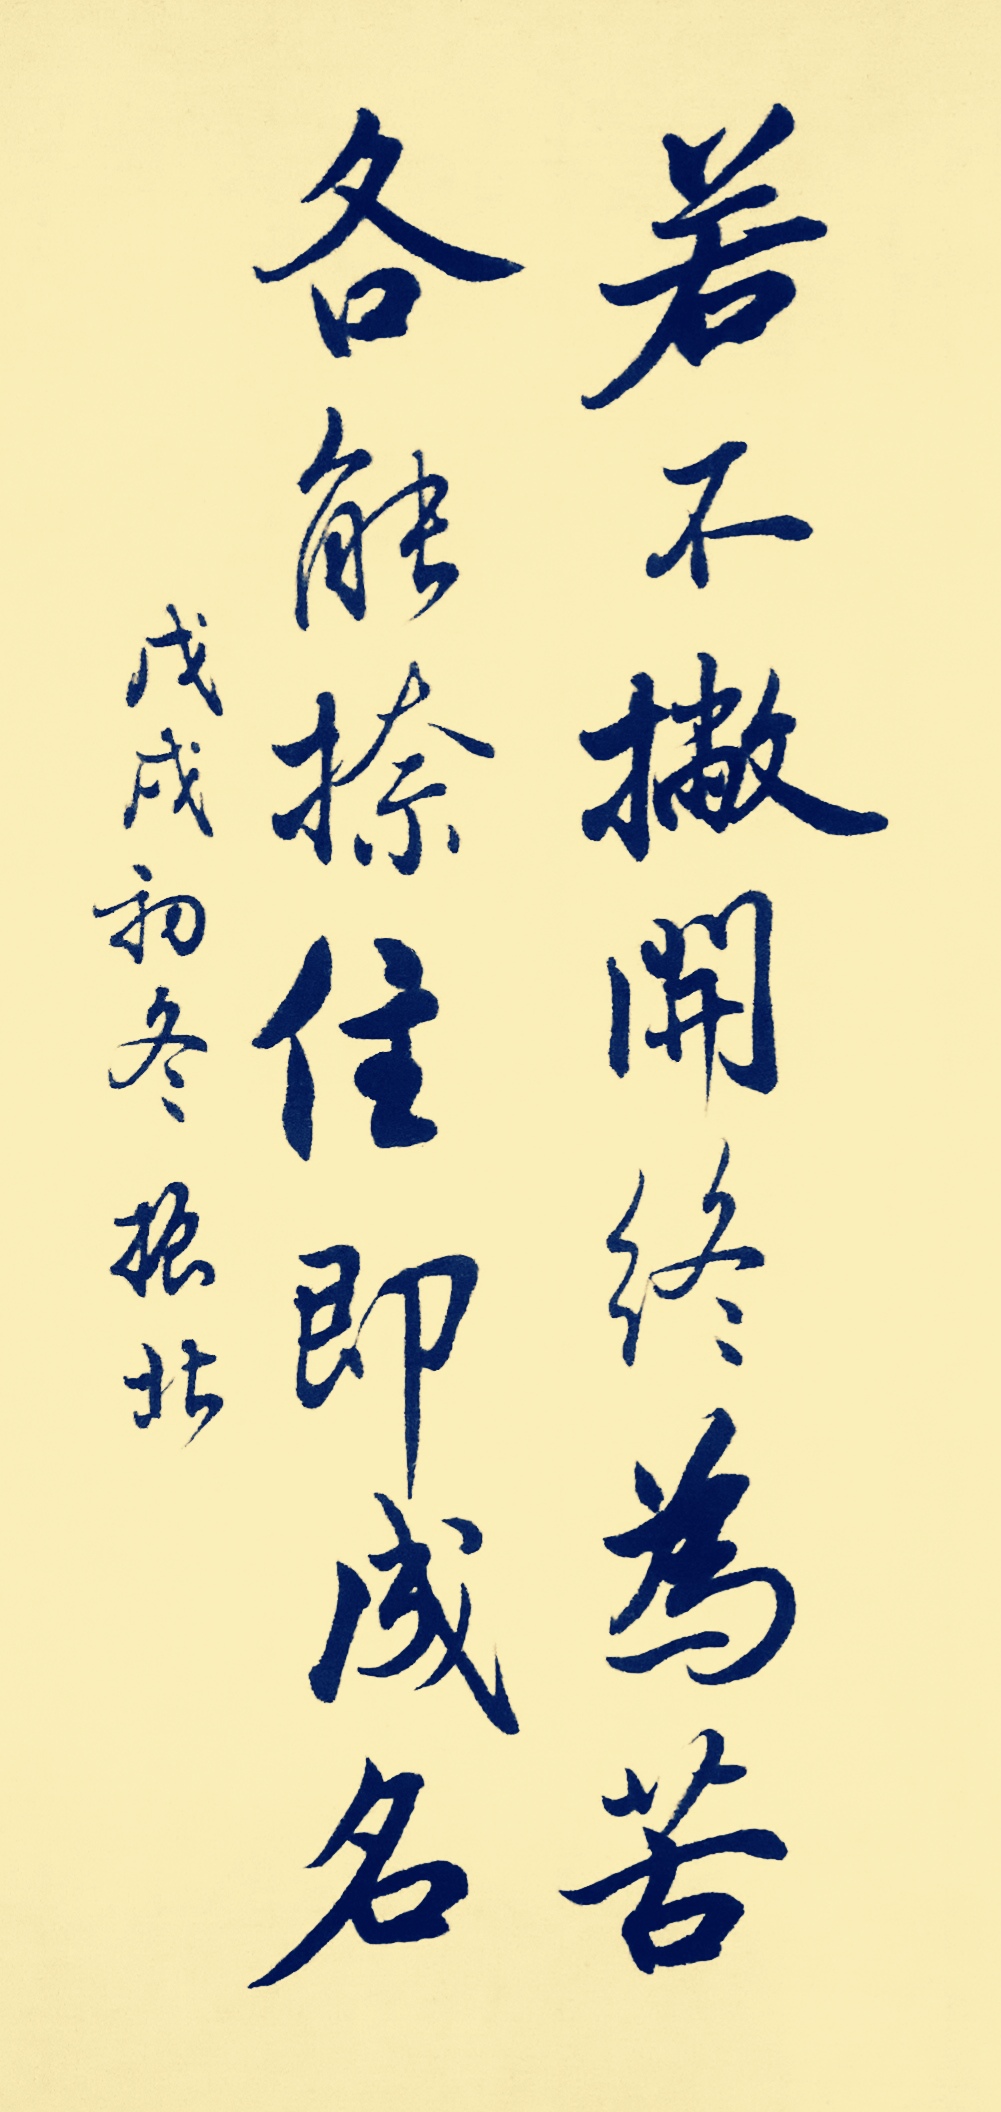 若不撇開終為苦
各能捺住即成名
戊戌初冬振北